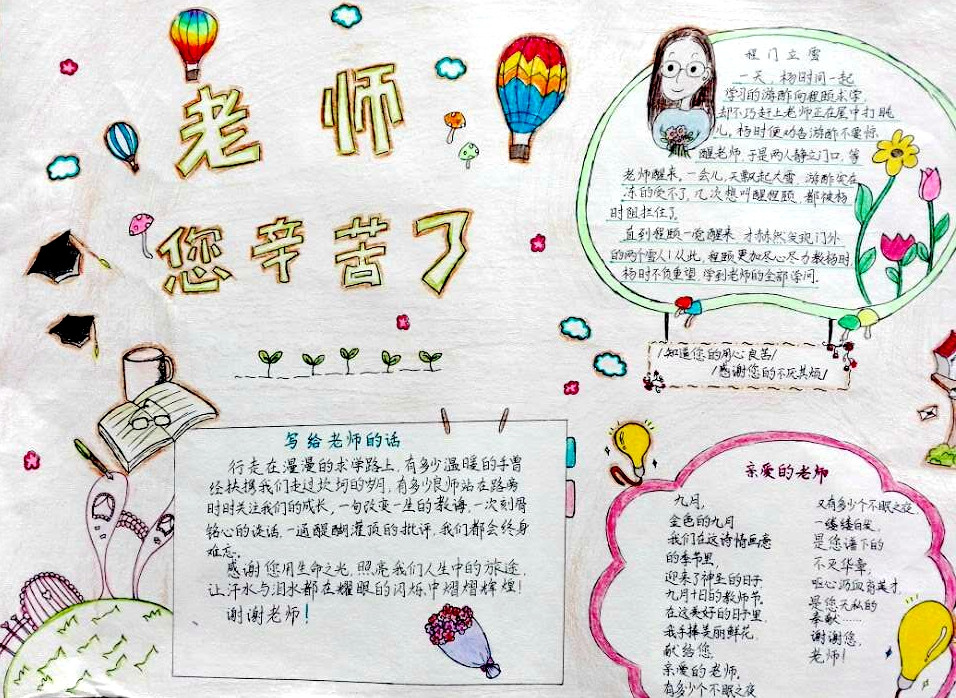 老师
您辛苦了
程门立雪
一天,杨时同一起
学习的游酢向程颐求学,
却不巧赶上老师正在屋中打盹
儿。杨时便劝告游酢不要惊
醒老师,于是两人静立门口,等
老师醒来。一会儿,天飘起大雪,游酢实在
冻的受不了,几次想叫醒程颐,都被杨
时阻拦住了。
直到程颐一觉醒来,才赫然发现门外
的两个雪人!从此,程颐更加尽心尽力教杨时,
杨时不负重望,学到老师的全部学问。
/知道您的用心良苦/
/感谢您的不厌其烦/
写给老师的话
行走在漫漫的求学路上,有多少温暖的手曾
经扶携我们走过坎坷的岁月,有多少良师站在路旁
时时关注我们的成长,一句改变一生的教诲,一次刻骨
铭心的谈话,一通醍醐灌顶的批评,我们都会终身
难忘。
感谢您用生命之光,照亮我们人生中的旅途,
让汗水与泪水都在耀眼的闪烁中熠熠辉煌!
谢谢老师!
亲爱的老师
九月,
金色的九月
我们在这诗情画意
的季节里,
迎来了神圣的日子
九月十日的教师节,
在这美好的日子里
我手捧美丽鲜花,
献给您,
亲爱的老师。
有多少个不眠之夜
又有多少个不眠之夜,
一缕缕白发,
是您谱下的
不灭华章,
呕心沥血育英才,
是您无私的
奉献……
谢谢您,
老师!